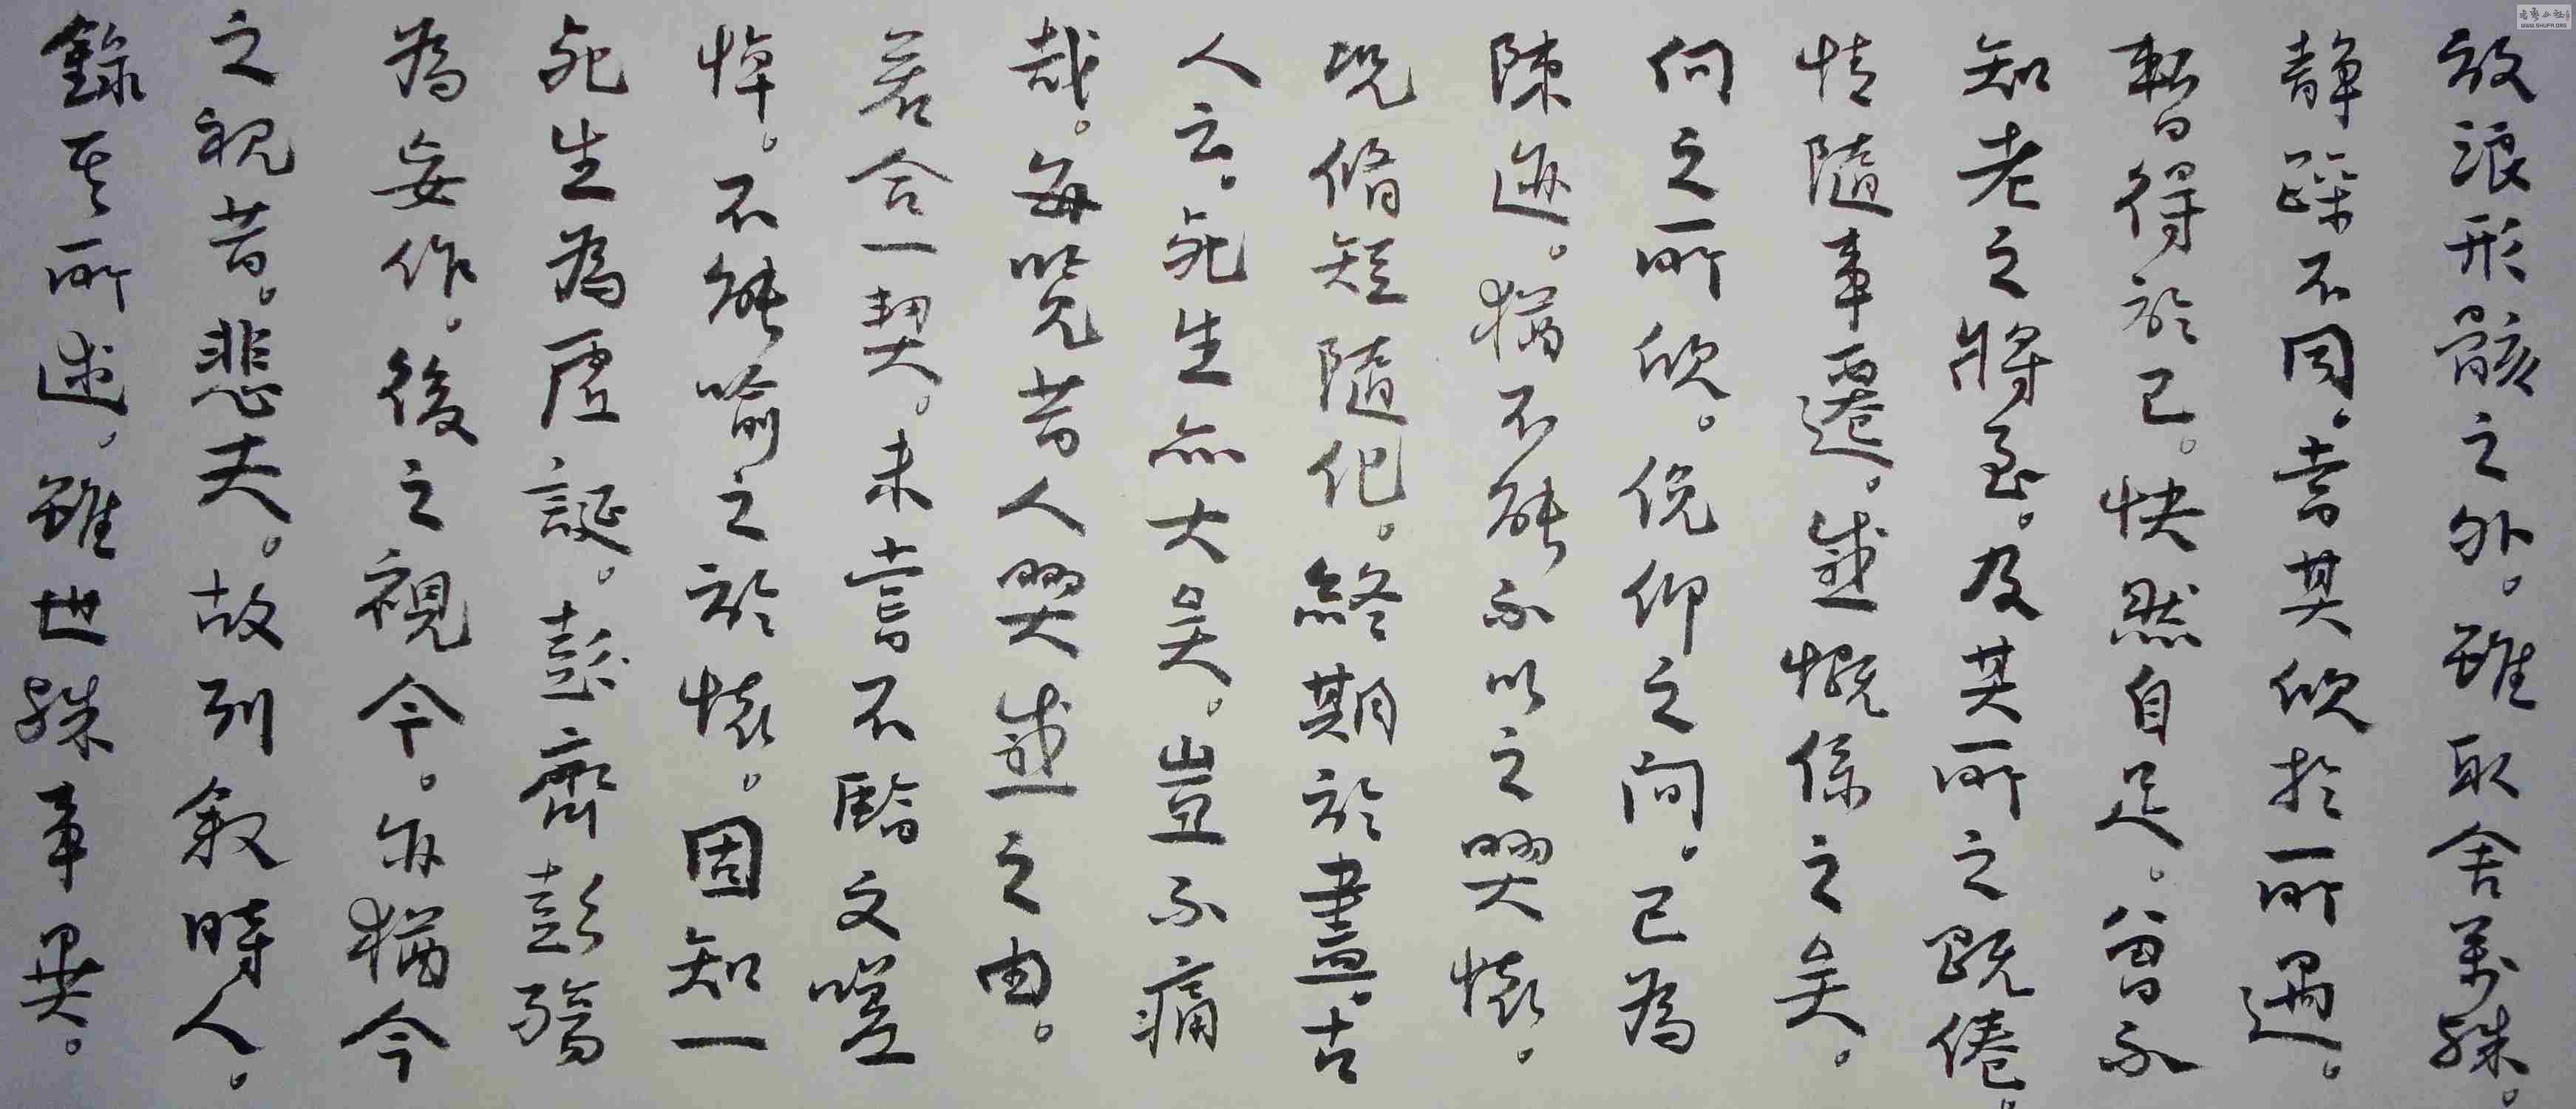 放浪形骸之外。雖取舍萬殊。
靜躁不同。當其欣於所遇。
暫得於己。快然自足。曾不
知老之將至。及其所之既倦。
情隨事遷。感慨係之矣。
向之所欣。俛仰之間。已為
陳迹。猶不能不以之興懷。
況脩短隨化。終期於盡。古
人云。死生亦大矣。豈不痛
哉。每覽昔人興感之由。
若合一契。未嘗不臨文嗟
悼。不能喻之於懷。固知一
死生為虛誕。彭齊彭殤
為妄作。後之視今。亦猶今
之視昔。悲夫。故列敘時人。
錄其所述。雖世殊事異。
WWW.SHUFA.ORG